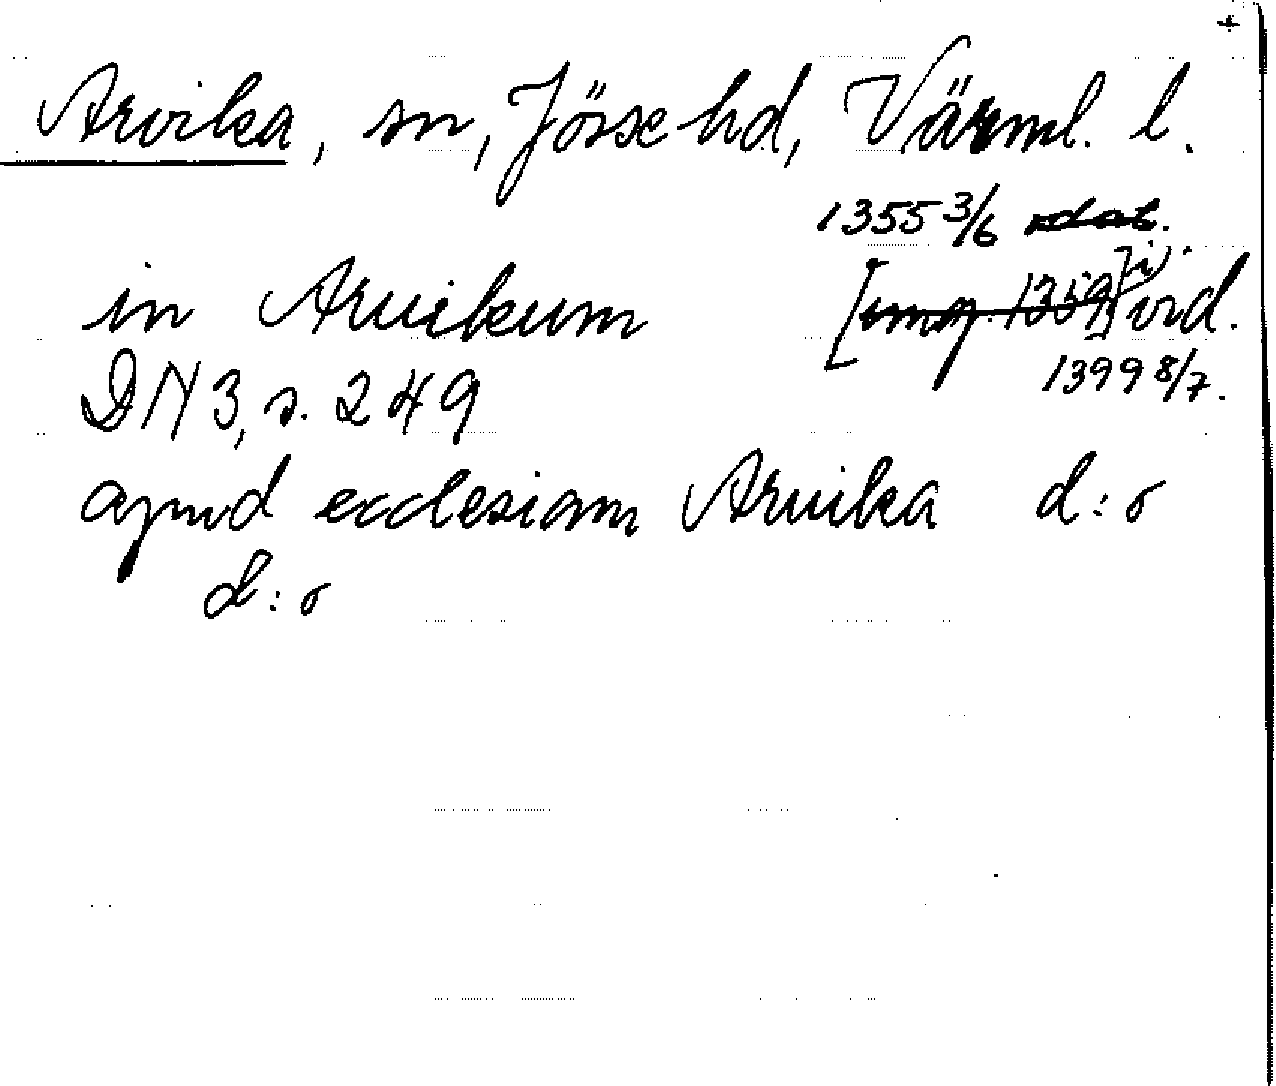 +
Arvika, sn, Jösse hd, Värml. l.
1355 3/6 odat.
in Aruikum [omg. 1359] i vid.
DN 3, s. 249 1399 8/7.
apud ecclesiam Aruika d:o
d:o